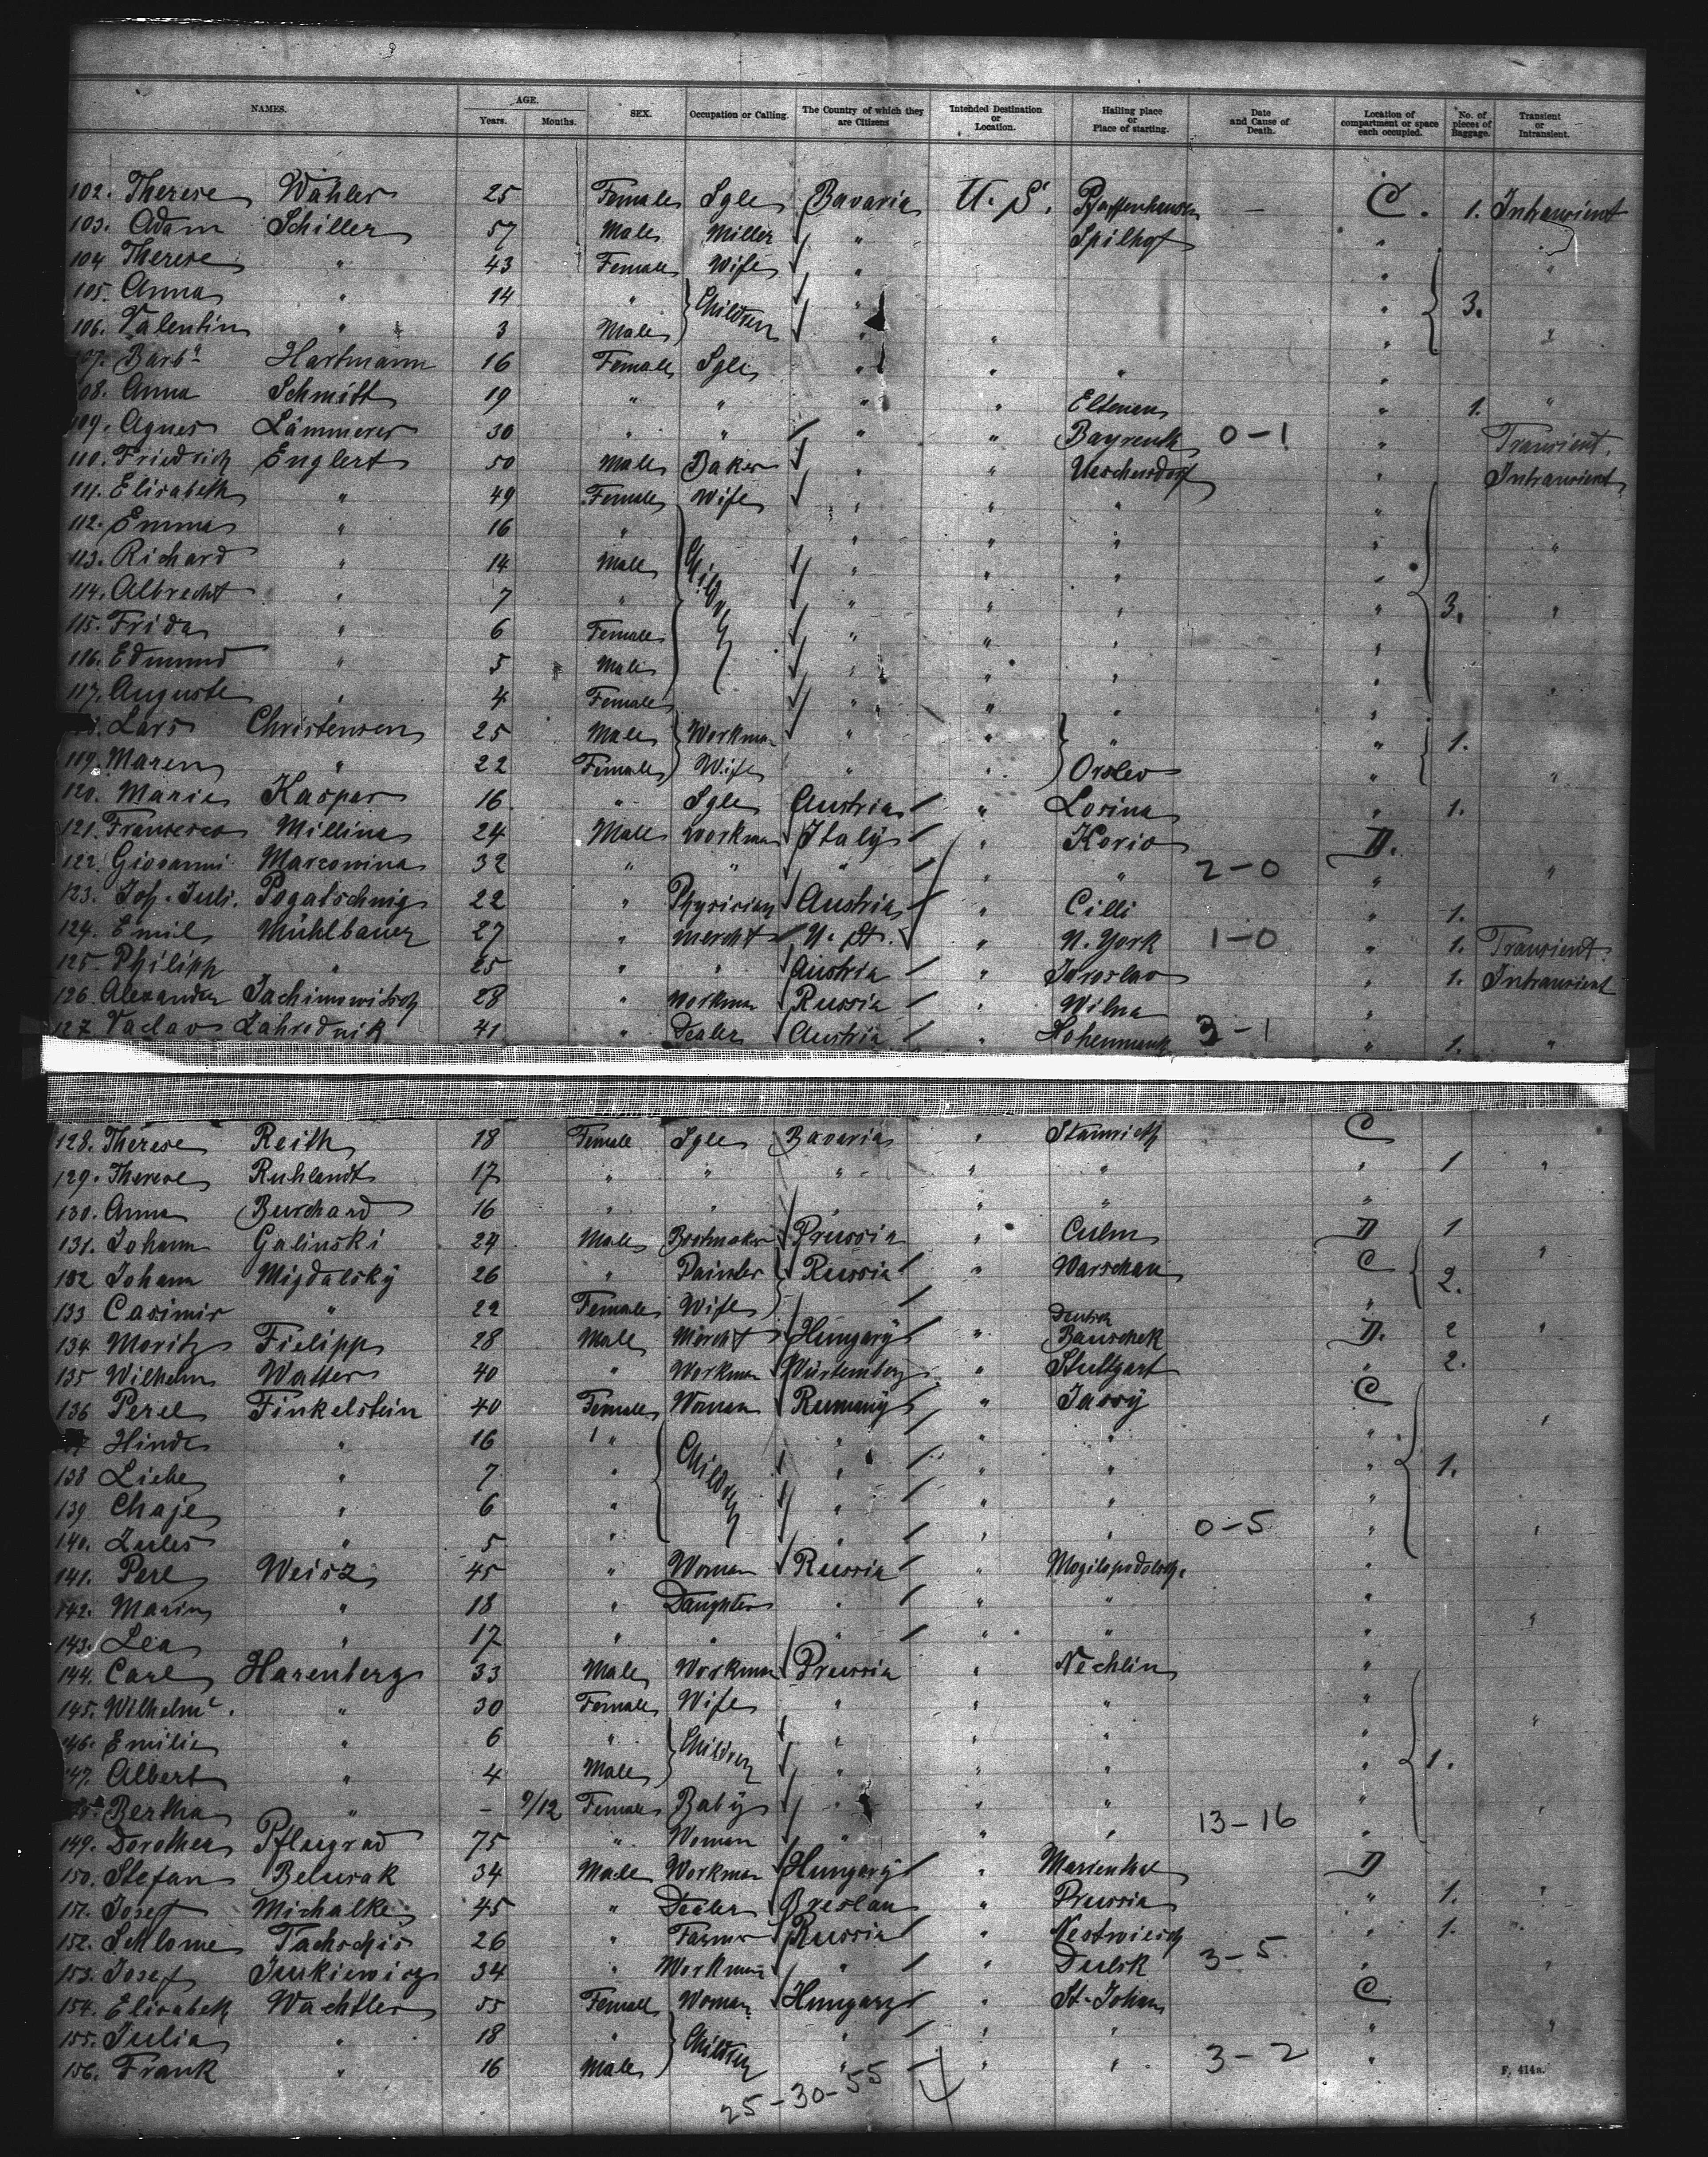 NAMES. AGE. SEX. Occupation or Calling. The Country of which they are Citizens Intended Destination or Location. Hailing place or Place of starting. Date and Cause of Death. Location of compartment or space each occupied. No. of pieces of Baggage. Transient or Intransient.
Years. Months.
102. Therese Wähler 25 Female Sgle Bavaria U. S. — C. 1. Intransient
103. Adam Schiller 57 Male Miller " Spilhof " "
104 Therese " 43 Female Wife " " "
105. Anna " 14 " Children " " 3.
106. Valentin " 3 Male " " " "
107. Barbª Hartmann 16 Female Sgle " " " "
108. Anna Schmitt 19 " " " " " 1. "
109. Agnes Lämmerer 30 " " " " Bayreuth 0-1 " Transient.
110. Friedrich Englert 50 Male Baker " " " Intransient
111. Elisabeth " 49 Female Wife " " " "
112. Emma " 16 " Children " " " " "
113. Richard " 14 Male " " " "
114. Albrecht " 7 " " " " " 3. "
115. Frida " 6 Female " " " "
116. Edmund " 5 Male " " " "
117. Auguste " 4 Female " " " " "
118. Lars Christensen 25 Male Workman " " " " 1.
119. Maren " 22 Female Wife " " Orslev " "
120. Marie Kaspar 16 " Sgle Austria " Losina " 1.
121. Francesco Millina 24 Male Workman Italy " Korio D.
122. Giovanni Marcowina 32 " " " " " 2-0 " "
123. Joh. Juli. Pogatschnig 22 " Physician Austria " Cilli " 1.
124. Emil Mühlbauer 27 " Mercht U. St. " N. York 1-0 " 1. Transient.
125. Philipp " 25 " " Austria Jaroslav " 1. Intransient
126. Alexander Jachimowitsch 28 " Workman Russia " Wilna "
127. Vaclav Zahrednik 41 " Dealer Austria " Hohenmauth 3-1 " 1. "
128. Therese Reith 18 Female Sgle Bavaria " Stamrieth C
129. Therese Ruhlandt 17 " " " " " " 1 "
130. Anna Burchard 16 " " " " " "
131. Johann Galinski 24 Male Bootmaker Prussia " Culm D 1
132 Johann Migdalsky 26 " Painter Russia " Warschau C 2. "
133 Casimir " 22 Female Wife "
134 Moritz Fielipp 28 Male Mercht Hungary " Deutsch Bauschek D. 2 "
135 Wilhelm Watter 40 " Workman Würtemberg " Stuttgart " 2.
136 Perel Finkelstein 40 Female Woman Rumany " Jassy C
137 Hinde " 16 " Children " " " " "
138 Liebe " 7 " " " " 1.
139 Chaje " 6 " " " " "
140. " 5 " " " 0-5 " "
141. Perl Weisz 45 " Woman Russia " Mogilopodolsch. "
142. Marim " 18 " Daughter " " " " "
143. Lea " 17 " " " " "
144. Carl Harenberg 33 Male Workman Prussia " Nechlin "
145. Wilhelme. " 30 Female Wife " " " " "
146. Emilie " 6 " Children " " " "
147. Albert " 4 Male " " " " 1.
148. Bertha " - 9/12 Female Baby " " " " "
149. Dorothea Pflugrad 75 " Woman " " " 13-16 "
150. Stefan Belusak 34 Male Workman Hungary " Marienthal D
151. Josef Michalke 45 " Dealer Breslau " Prussia " 1. "
152. Schlome Tachschis 26 " Farmer Russia " " 1. "
153. Josef Juskiewicz 34 " Workman " " Dulsk 3-5 " "
154. Elisabeth Wachtler 55 Female Woman Hungary " St. Johan C
155. Julia " 18 " Children " " " " "
156. Frank " 16 Male " " " 3-2 "
25-30-55
F. 414a.